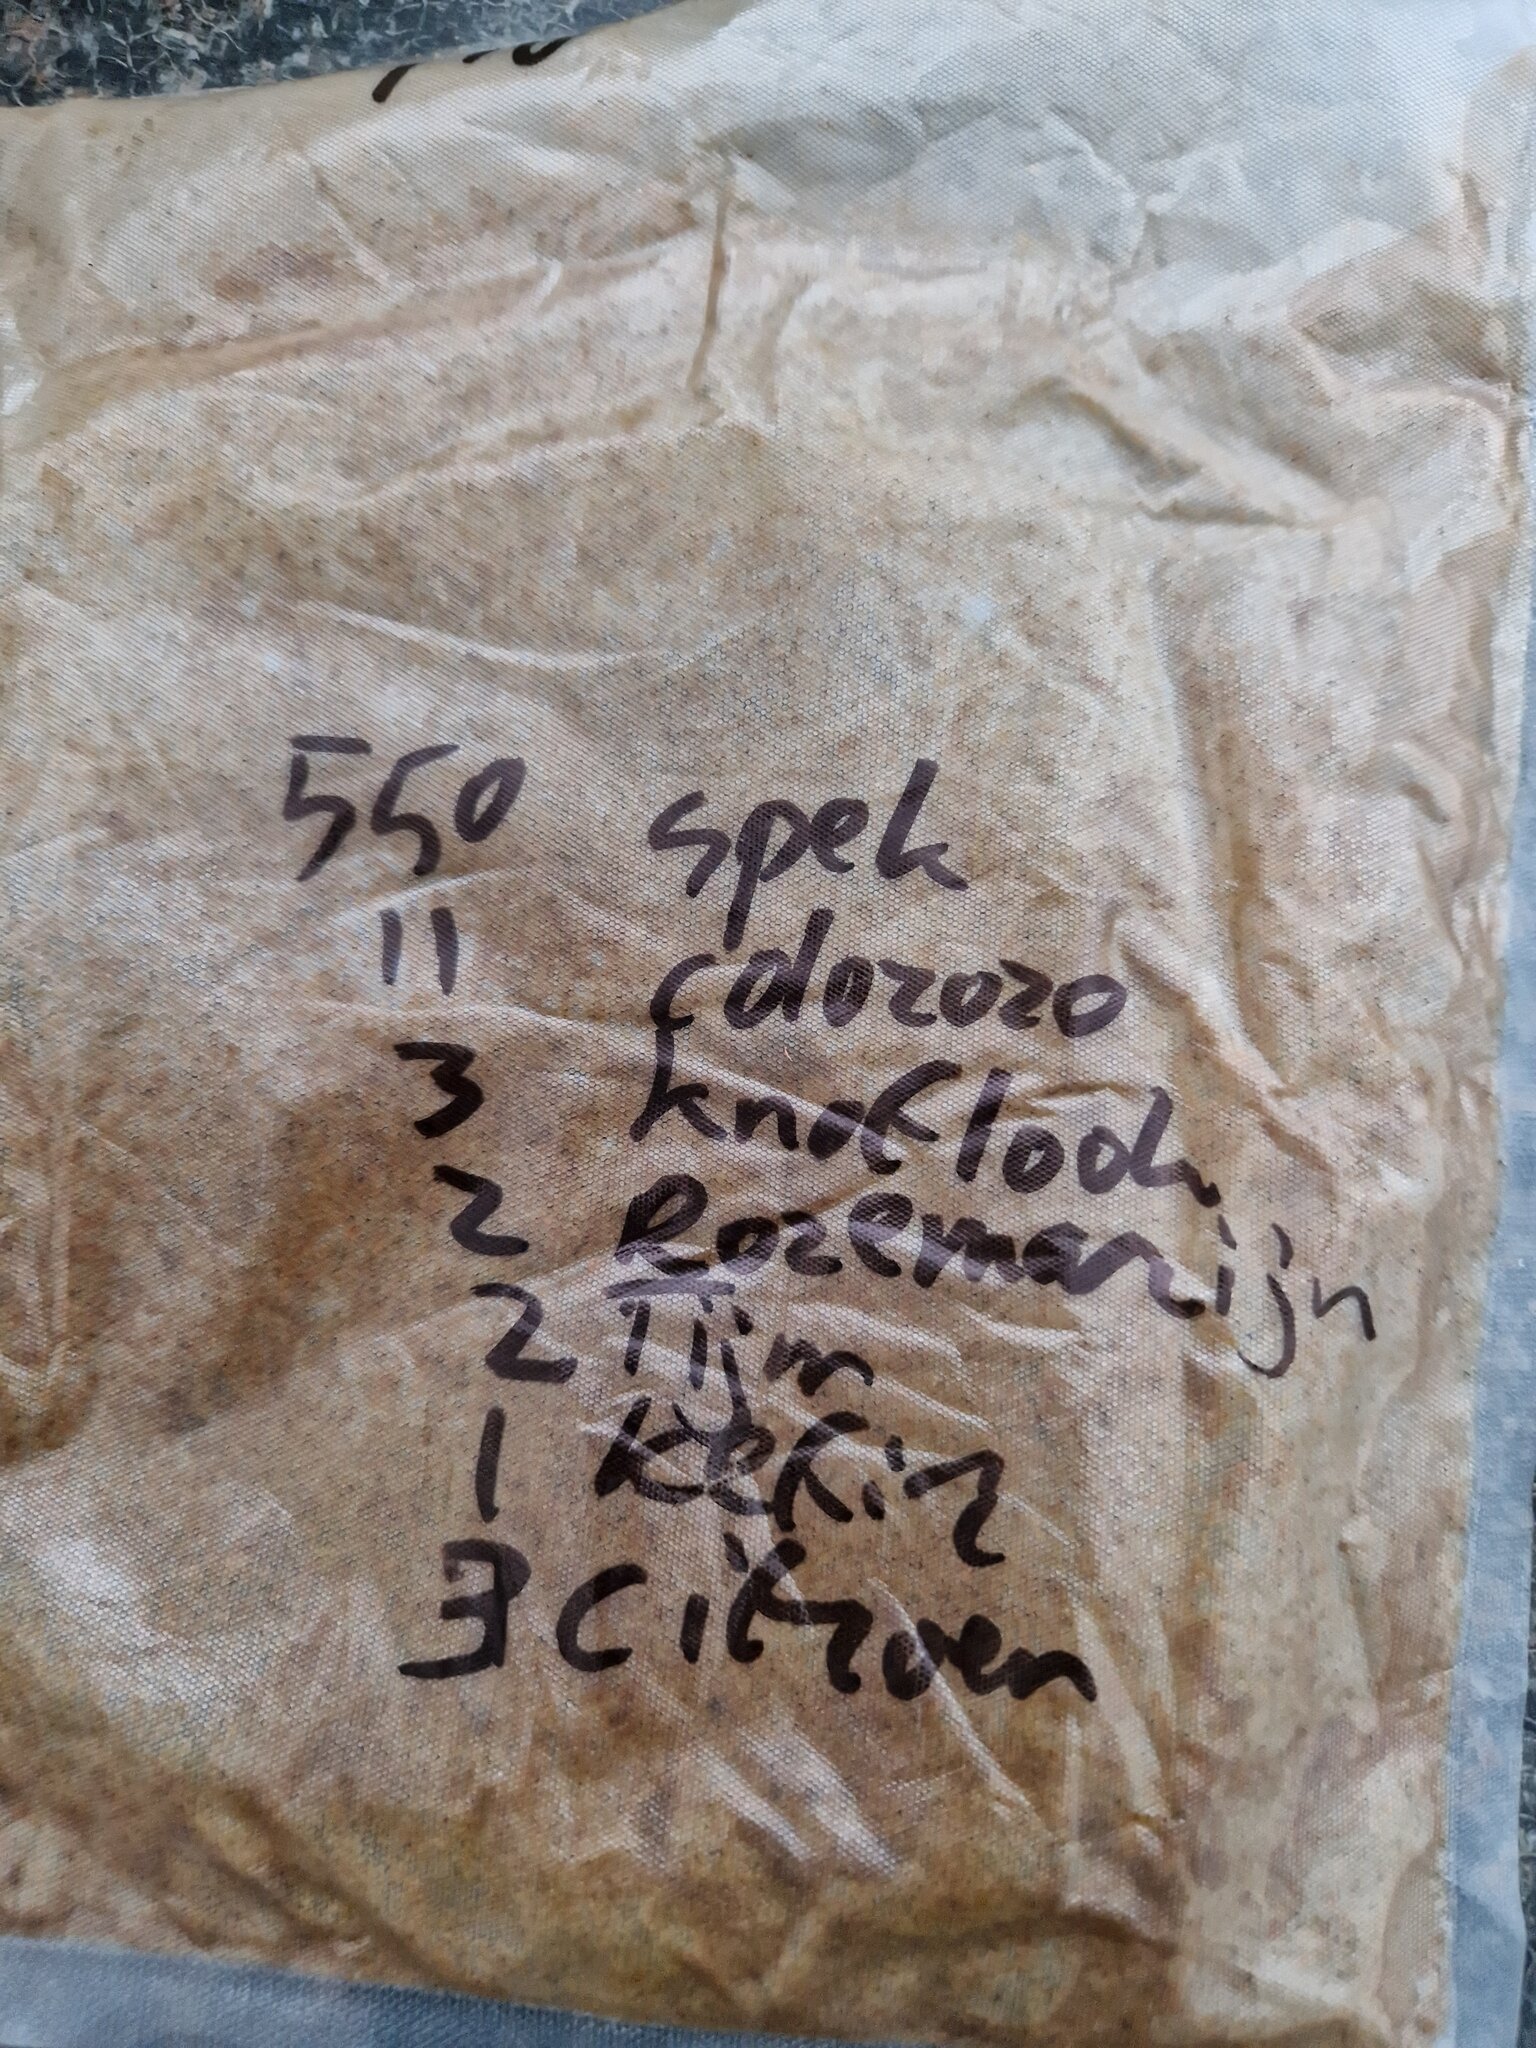 550 spek
11 colorozo
3 knoflook
2 Rozemarijn
2 Tijm
1 kefir
3 Citroen